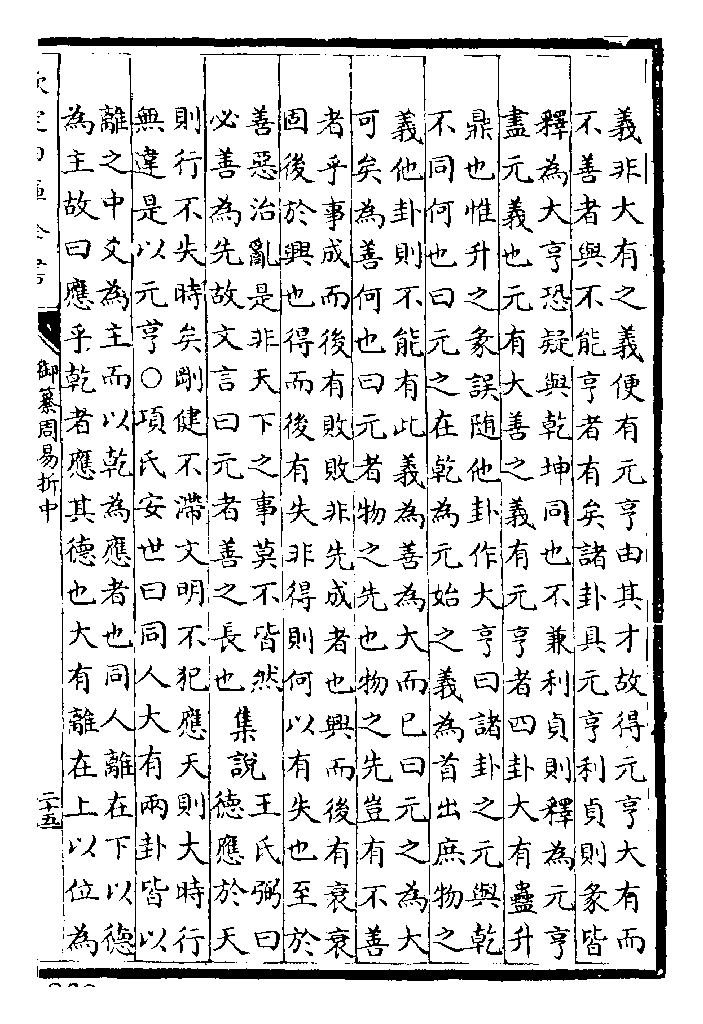 義非大有之義便有元亨由其才故得元亨大有而
不善者與不能亨者有矣諸卦具元亨利貞則彖皆
釋為大亨恐疑與乾坤同也不兼利貞則釋為元亨
盡元義也元有大善之義有元亨者四卦大有蠱升
鼎也惟升之彖誤隨他卦作大亨曰諸卦之元與乾
不同何也曰元之在乾為元始之義為首出庶物之
義他卦則不能有此義為善為大而已曰元之為大
可矣為善何也曰元者物之先也物之先豈有不善
者乎事成而後有敗敗非先成者也興而後有衰衰
固後於興也得而後有失非得則何以有失也至於
善惡治亂是非天下之事莫不皆然
必善為先故文言曰元者善之長也
集說
王氏弼曰
德應於天
則行不失時矣剛健不滯文明不犯應天則大時行
無違是以元亨○項氏安世曰同人大有兩卦皆以
離之中爻為主而以乾為應者也同人離在下以德
為主故曰應乎乾者應其德也大有離在上以位為
欽定四庫全書
御纂周易折中
二十五